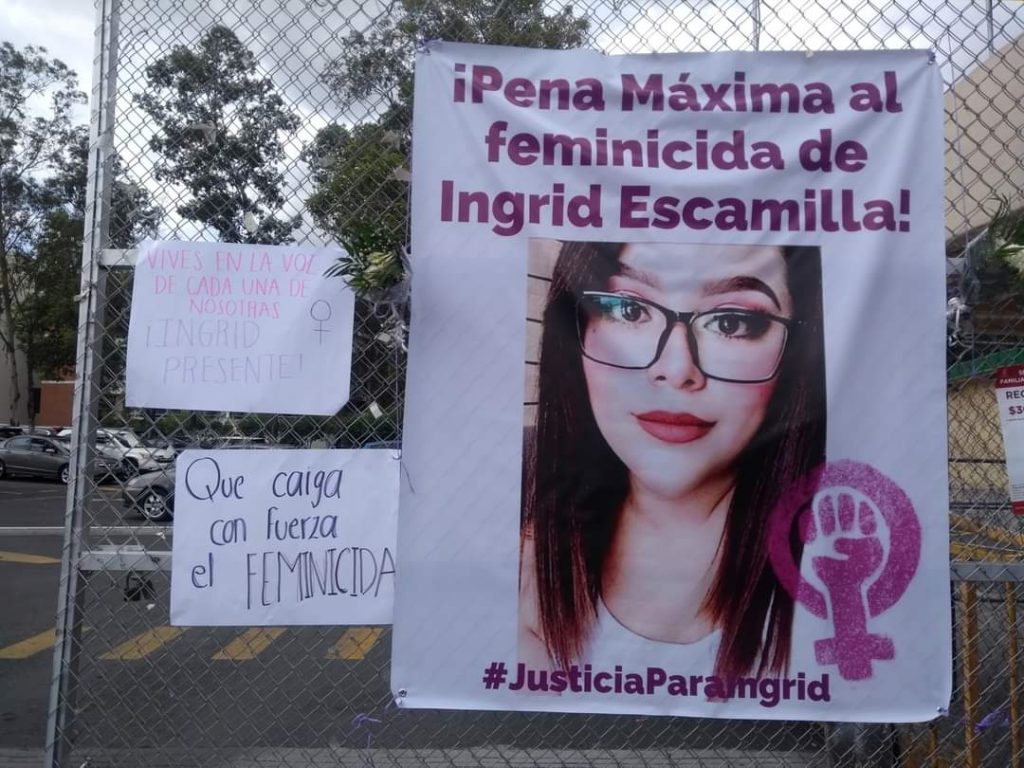 ¡Pena Máxima al
feminicida de
Ingrid Escamilla!
#JusticiaParaIngrid
VIVES EN LA VOZ
DE CADA UNA DE
NOSOTRAS
¡INGRID
PRESENTE!
Que caiga
con fuerza
el FEMINICIDA
FAMILIA
REC
$3